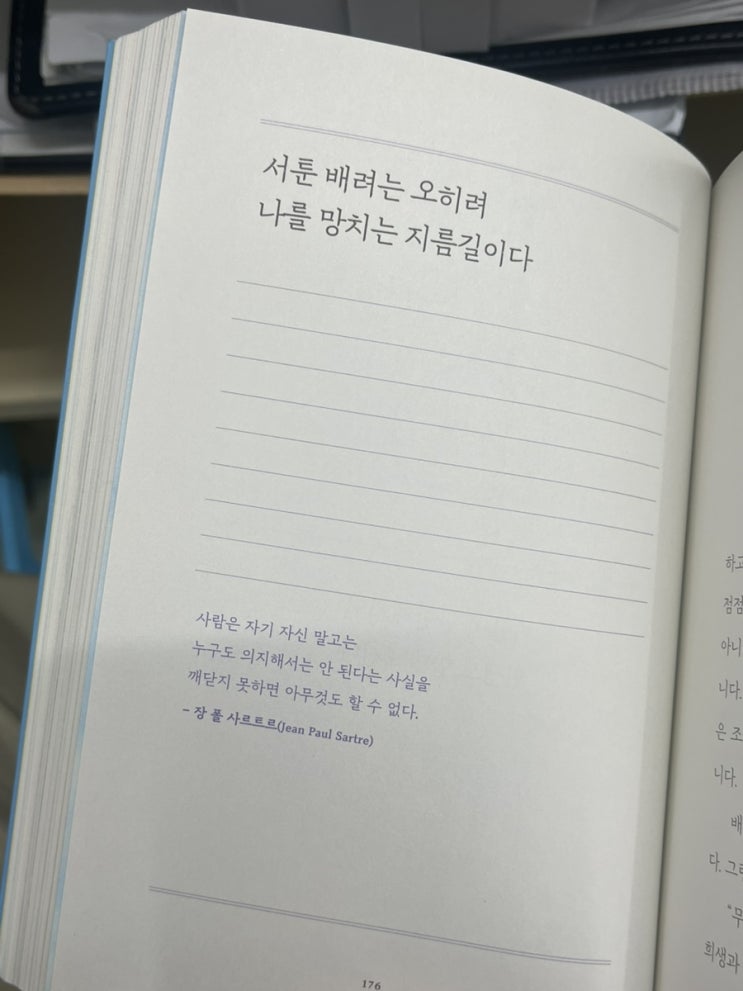 서툰 배려는 오히려
나를 망치는 지름길이다
사람은 자기 자신 말고는
누구도 의지해서는 안 된다는 사실을
깨닫지 못하면 아무것도 할 수 없다.
– 장 폴 사르트르(Jean Paul Sartre)
176
하고
점점
아니
니다.
은 조
니다.
배
다. 그
“무
희생과